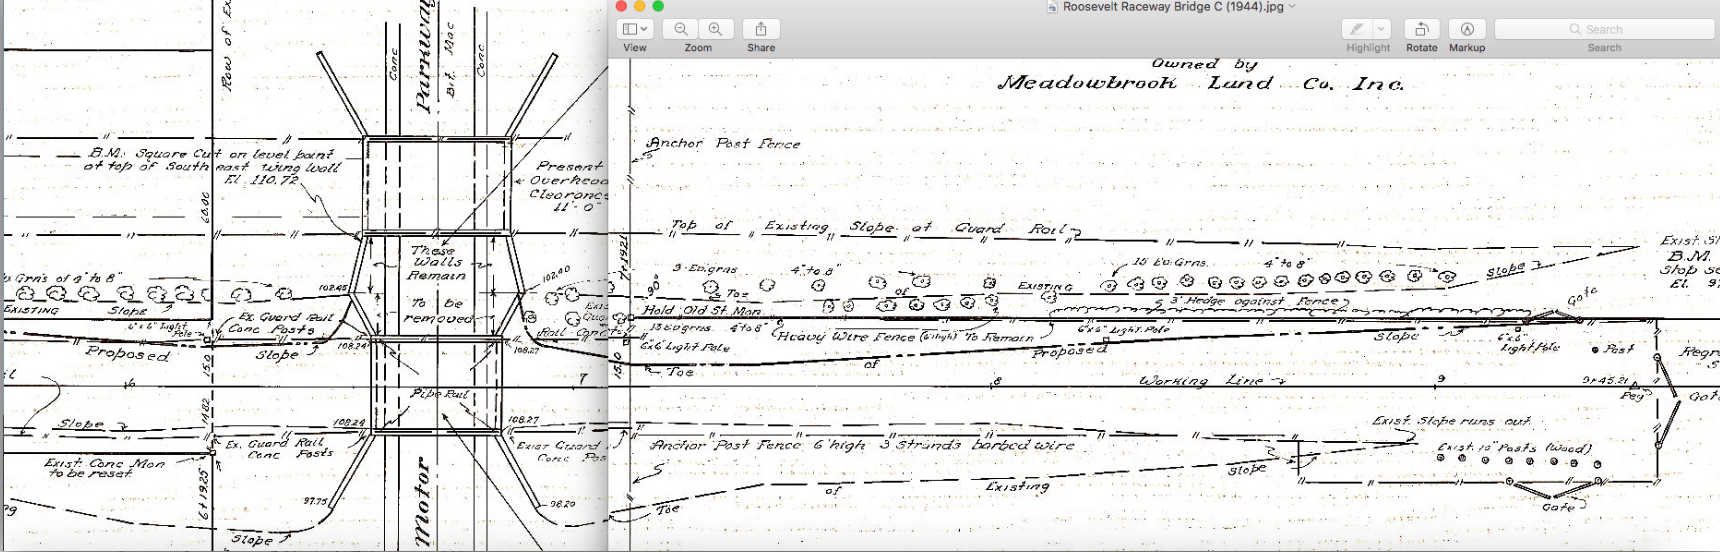 Roosevelt Raceway Bridge C (1944).jpg
View
Zoom
Share
Highlight
Rotate
Markup
Search
Search
Row of Ex
Conc
Parkway
Bit. Mac
Conc
B.M. Square Cut on level point
at top of South east wing wall
El. 110.72
60.00
Present
Overhead
Clearance
11'-0"
These
Walls
Remain
To be
removed
102.45
102.40
Grns of 4" to 8"
EXISTING
Slope
6"x6" Light
Pole
Ex. Guard Rail
Conc Posts
Proposed
Slope
108.24
108.27
Rail
15.0
6
7
Pipe Rail
14.82
Slope
108.24
108.27
Ex. Guard Rail
Conc Posts
Exist Guard
Conc Pos
Exist. Conc Mon
to be reset
6+19.25
97.75
98.20
Slope
Motor
Owned by
Meadowbrook Land Co. Inc.
Anchor Post Fence
S
Top of Existing Slope at Guard Rail
7+19.21
90°
9-Ev.grns. 4" to 8"
Toe
of
EXISTING
15 Ev. Grns. 4" to 8"
Slope
Exist. Sl
B.M.
El. 97
Hold Old St. Mon.
3' Hedge against Fence
Gate
13 Evgrns. 4" to 8"
Heavy Wire Fence (6' high) To Remain
6"x6" Light Pole
6"x6" Light Pole
Proposed
Slope
6"x6"
Light Pole
Post
Regr
15.0
Toe
of
8
Working Line
9
9+45.21
Peg
Gate
Exist. Slope runs out
Anchor Post Fence 6' high 3 Strands barbed wire
Exist. 10" Posts (Wood)
S
Slope
of
Existing
Toe
Gate